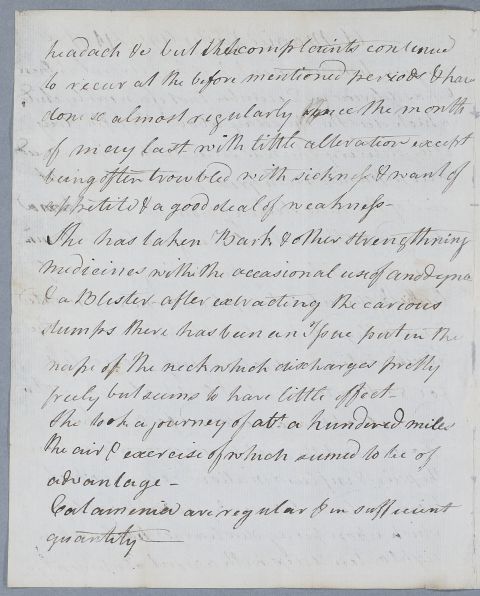 headach &c but the complaints continue
to recur at the before mentioned periods & have
done so almost regularly since the month
of may last with little alteration except
being often troubled with sickness & want of
appetite & a good deal of weakness -
She has taken Bark & other strengthning
medicines with the occasional use of anodyne
& a Blister. after extracting the carious
stumps there has been an Issue put in the
nape of the neck which discharges pretty
freely but seems to have little effect -
She took a journey of abt a hundred miles
the air & exercise of which seemed to be of
advantage -
Catamenia are regular & in sufficient
quantity